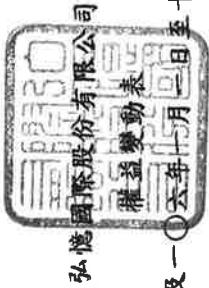 弘憶國際股份有限公司
權益變動表
及一〇六年一月一日至十